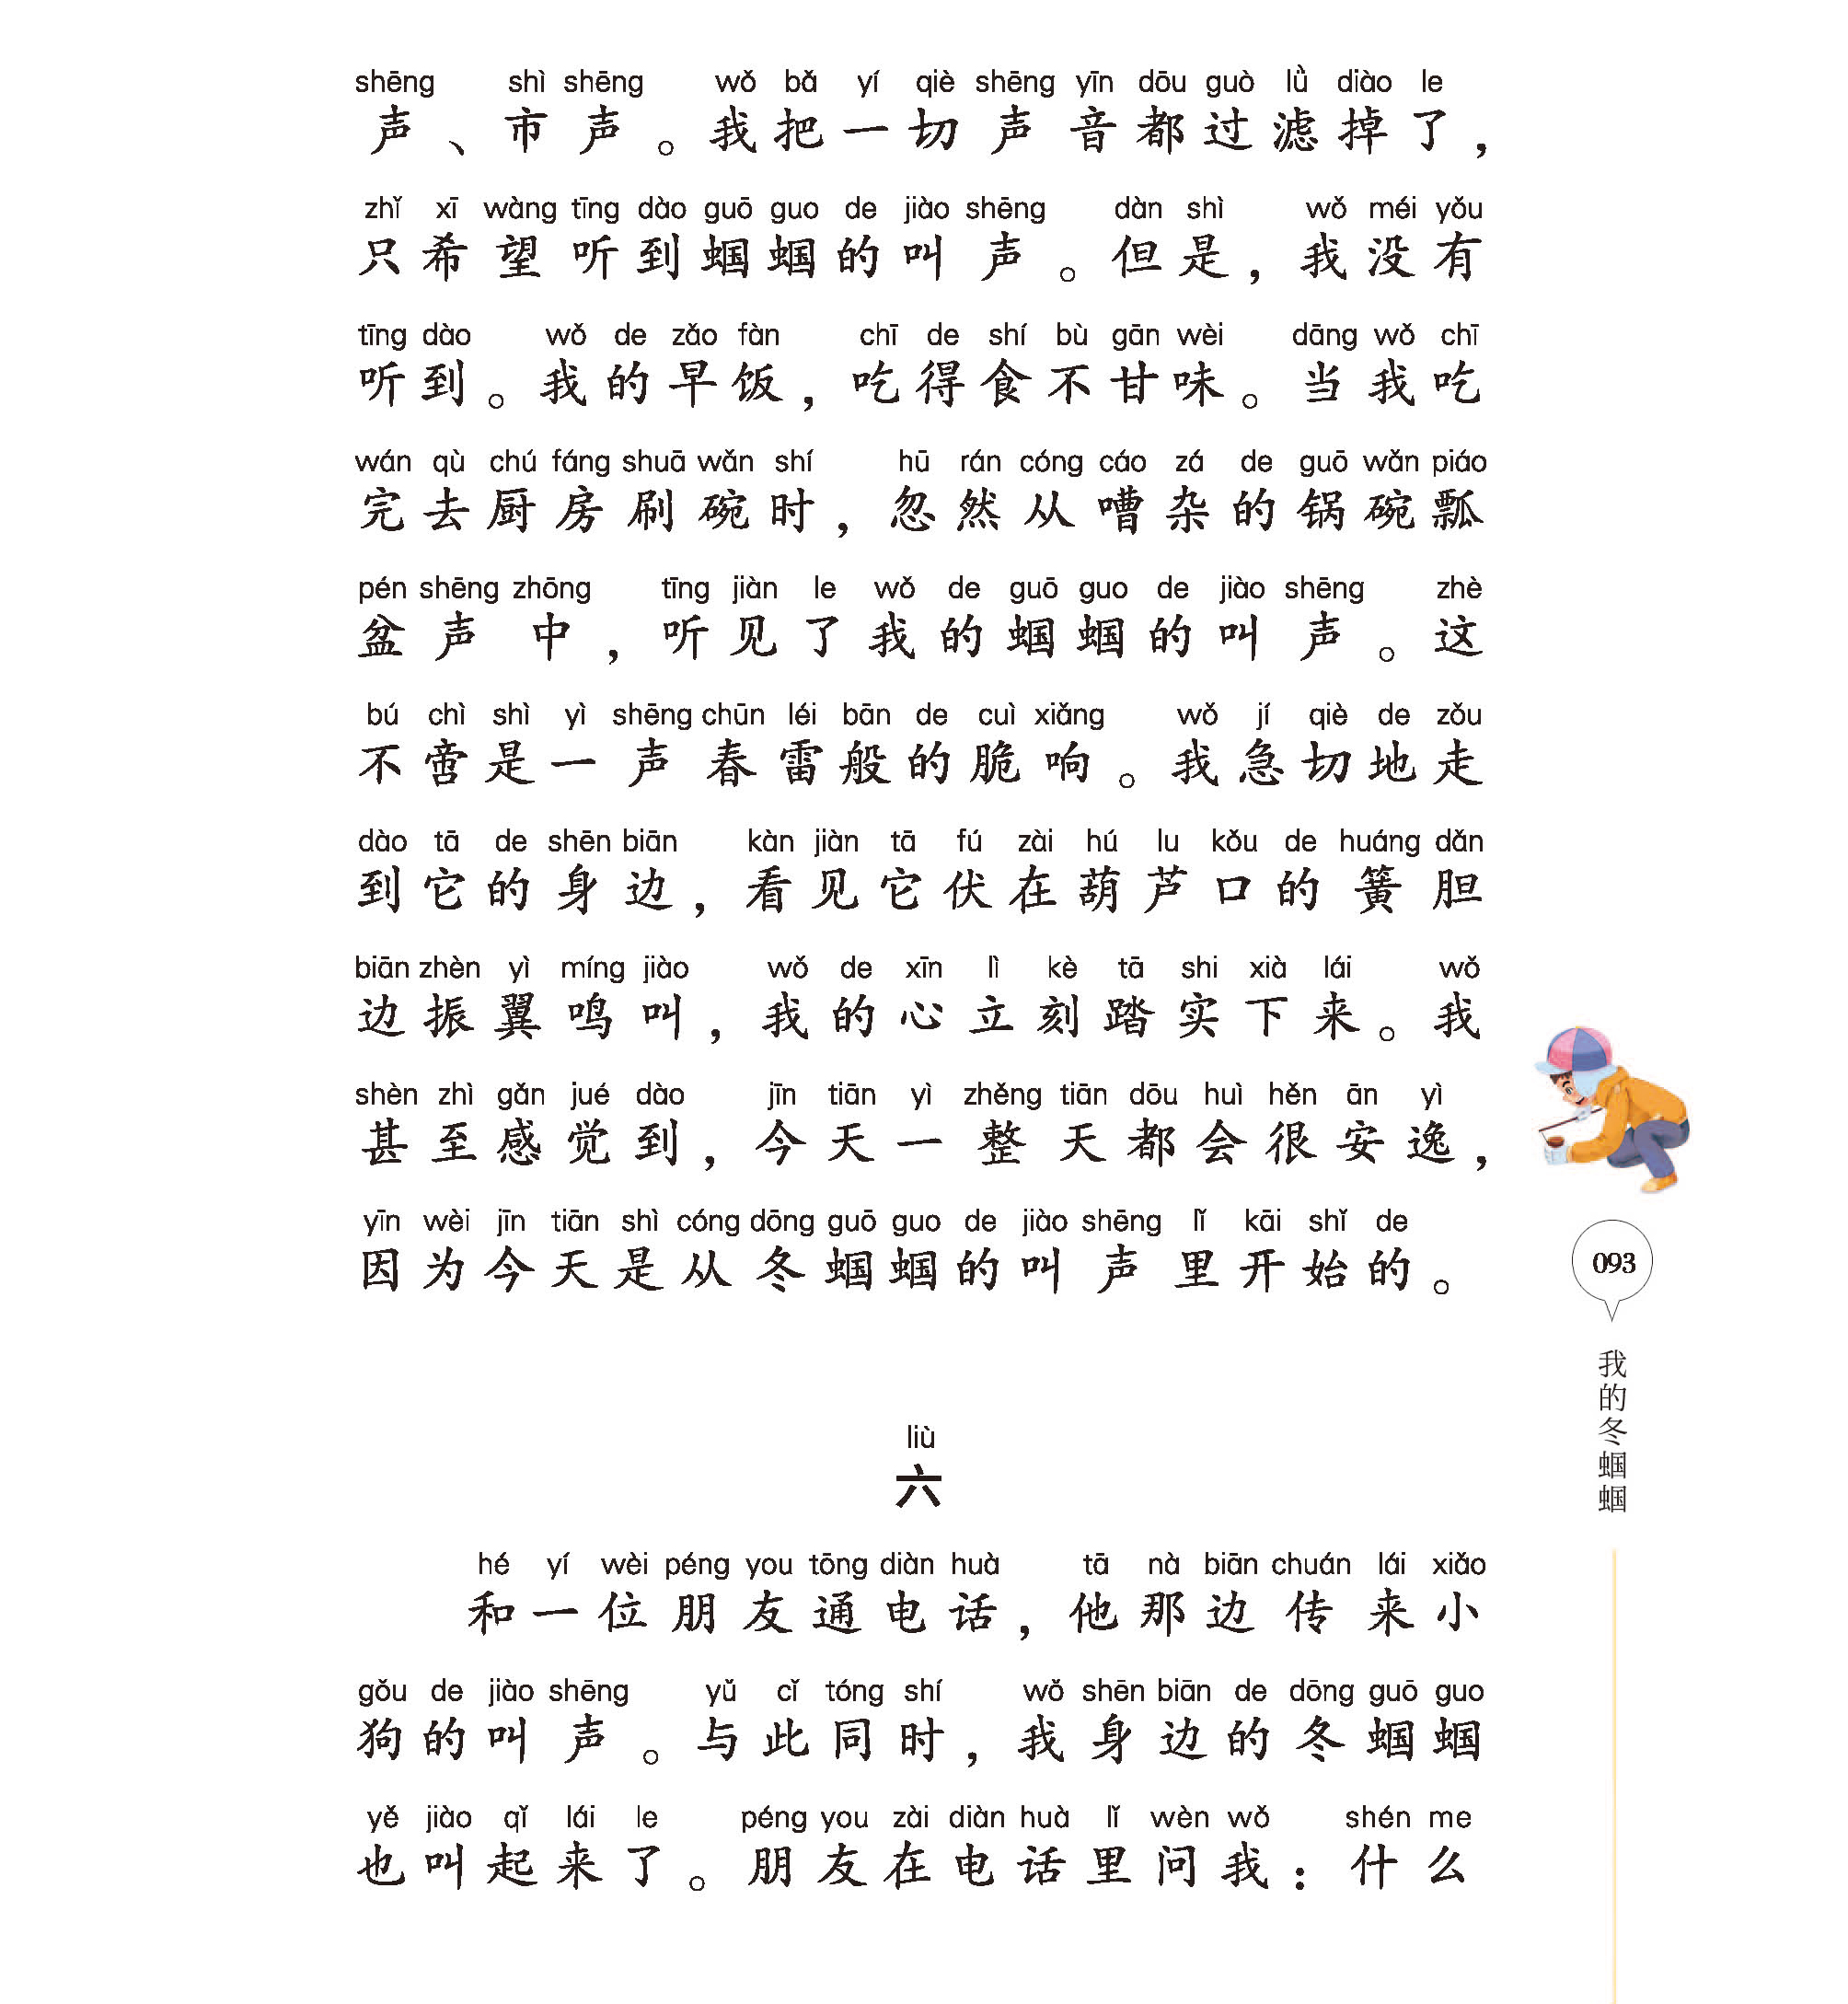 shēng shì shēng wǒ bǎ yí qiè shēng yīn dōu guò lǜ diào le
声、市声。我把一切声音都过滤掉了，
zhǐ xī wàng tīng dào guō guo de jiào shēng dàn shì wǒ méi yǒu
只希望听到蝈蝈的叫声。但是，我没有
tīng dào wǒ de zǎo fàn chī de shí bù gān wèi dāng wǒ chī
听到。我的早饭，吃得食不甘味。当我吃
wán qù chú fáng shuā wǎn shí hū rán cóng cáo zá de guō wǎn piáo
完去厨房刷碗时，忽然从嘈杂的锅碗瓢
pén shēng zhōng tīng jiàn le wǒ de guō guo de jiào shēng zhè
盆声中，听见了我的蝈蝈的叫声。这
bú chì shì yì shēng chūn léi bān de cuì xiǎng wǒ jí qiè de zǒu
不啻是一声春雷般的脆响。我急切地走
dào tā de shēn biān kàn jiàn tā fú zài hú lu kǒu de huáng dǎn
到它的身边，看见它伏在葫芦口的簧胆
biān zhèn yì míng jiào wǒ de xīn lì kè tā shi xià lái wǒ
边振翼鸣叫，我的心立刻踏实下来。我
shèn zhì gǎn jué dào jīn tiān yì zhěng tiān dōu huì hěn ān yì
甚至感觉到，今天一整天都会很安逸，
yīn wèi jīn tiān shì cóng dōng guō guo de jiào shēng lǐ kāi shǐ de
因为今天是从冬蝈蝈的叫声里开始的。
liù
六
hé yí wèi péng you tōng diàn huà tā nà biān chuán lái xiǎo
和一位朋友通电话，他那边传来小
gǒu de jiào shēng yǔ cǐ tóng shí wǒ shēn biān de dōng guō guo
狗的叫声。与此同时，我身边的冬蝈蝈
yě jiào qǐ lái le péng you zài diàn huà lǐ wèn wǒ shén me
也叫起来了。朋友在电话里问我：什么
093
我的冬蝈蝈